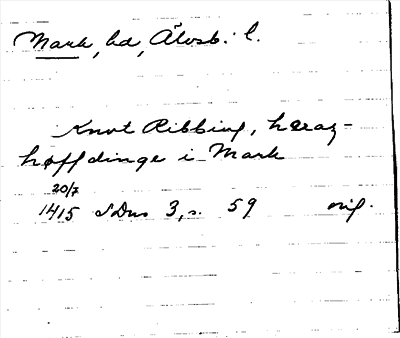 Mark, hd, Älvsb. l.
Knut Ribbing, hæraz-
høffdinge i Mark
20/7
1415 SDns 3, s. 59 orig.